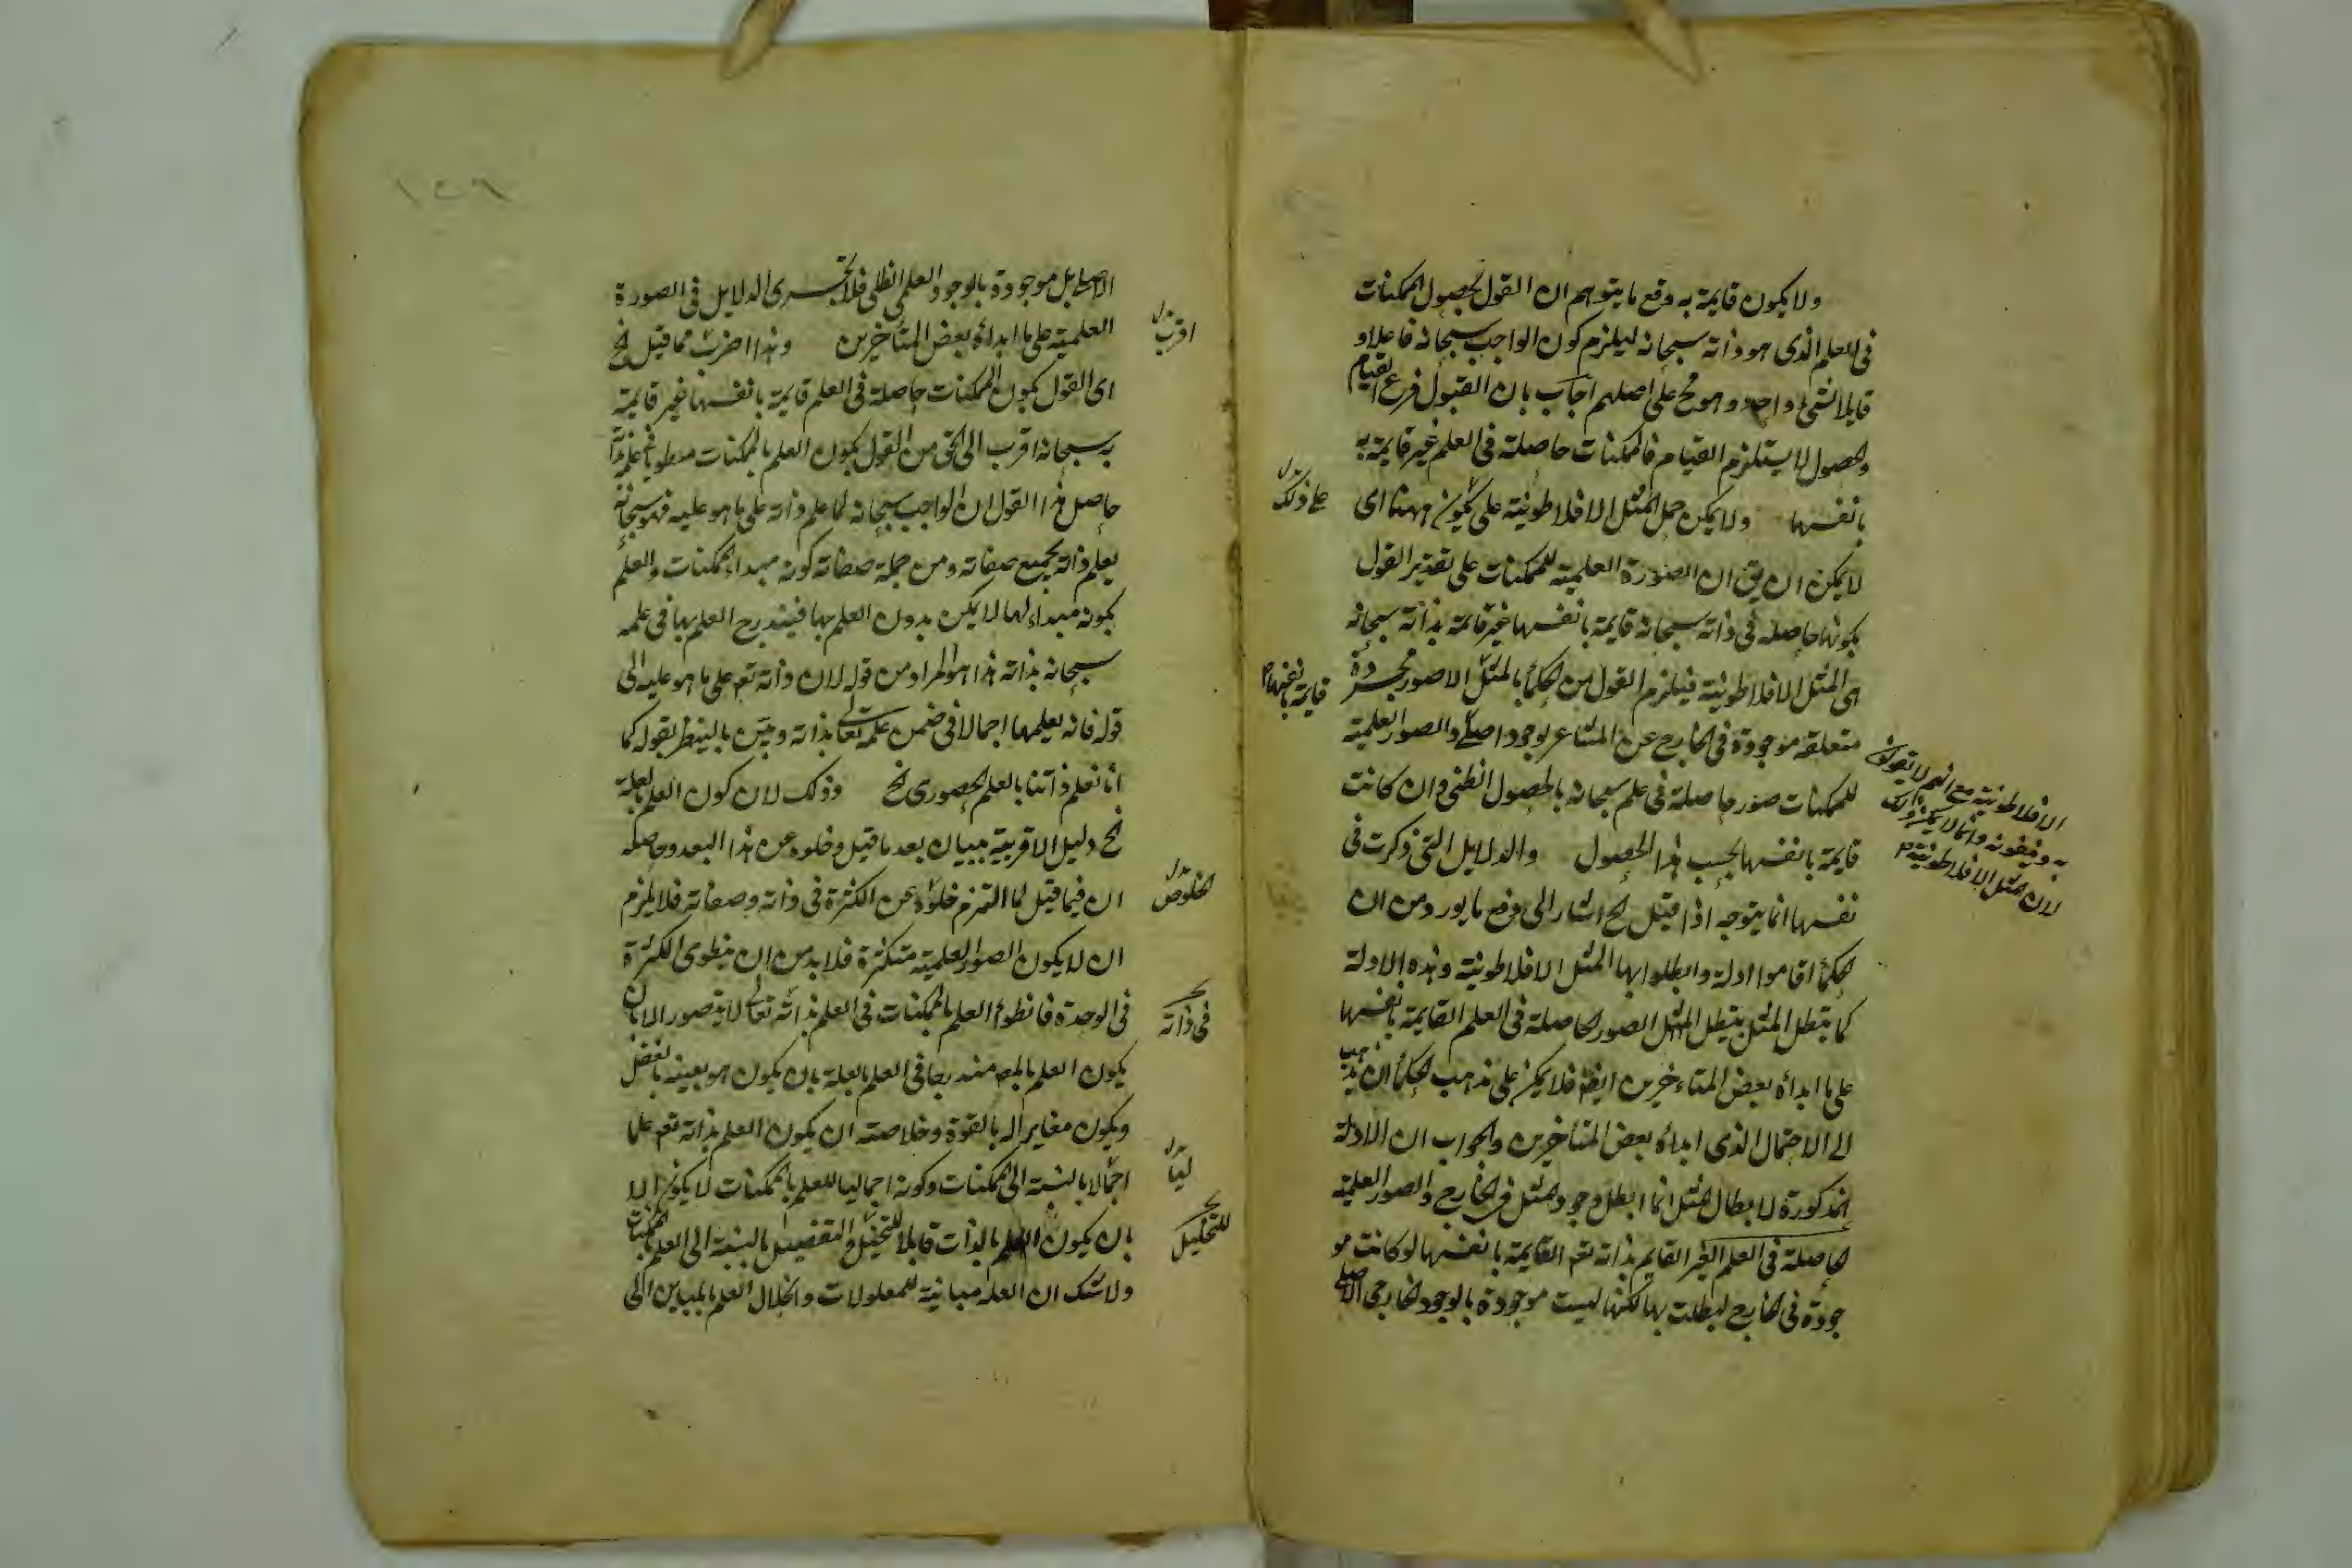 ولا يكون قايمة به وقع ما يتوهم ان القول بحصول الممكنات
فى العلم الذى هو ذاته سبحانه ليلزم كون الواجب سبحانه فاعلا و
قابلا لشئ واحد وهو مح على اصلهم اجاب بان القبول فرع القيام
والحصول لا يستلزم القيام فالممكنات حاصلة فى العلم غير قايمة به
بانفسها ولا يمكن حمل المثل الافلاطونية على ههنا اى
على ذلك
لا يمكن ان يق ان الصورة العلمية للممكنات على تقدير القول
بكونها حاصلة فى ذاته سبحانه قايمة بانفسها غير قائمة بذاته سبحانه
هى المثل الافلاطونية فيلزم القول من الحكماء بالمثل الا صور مجردة
قايمة بانفسها
متعلقة موجودة فى الخارج عن المشاعر بوجود اصلى والصور العلمية
الافلاطونية مع انهم لا يقولون
به وينفونه وانما لا يمكن ذلك
لان المثل الافلاطونية
للممكنات صور حاصلة فى علم سبحانه بالحصول الظلى وان كانت
قايمة بانفسها بحسب هذا الحصول والدلايل التى ذكرت فى
نفسها انما يتوجه اذا قيل الخ اشار الى دفع ما يورد من ان
الحكماء اقاموا ادلة وابطلوا بها المثل الافلاطونية وهذه الادلة
كما يبطل المثل يبطل الصور الحاصلة فى العلم القايمة بانفسها
على ما ابداه بعض المتاخرين ايضا فلا يمكن على مذهب الحكماء ان يذهب
الى الاحتمال الذى ابداه بعض المتاخرين والجواب ان الادلة
المذكورة لابطال المثل انما ابطل وجود المثل فى الخارج والصور العلمية
الحاصلة فى العلم الغير القايم بذاته تعم القايمة بانفسها لو كانت مو
جودة فى الخارج لبطلت بها لكنها ليست موجودة بالوجود الخارجى الاصلى
١٢٩
الاصلى بل موجودة بالوجود العلمى الظلى فلا يجرى الدلايل فى الصورة
العلمية على ما ابداه بعض المتأخرين وهذا اقرب مما قيل الخ
اقرب
اى القول بكون الممكنات حاصلة فى العلم قايمة بانفسها غير قايمة
به سبحانه اقرب الى الحق من القول بكون العلم بالممكنات منطويا فى علمه بذاته
حاصل هذا القول ان الواجب سبحانه لما علم ذاته على ما هو عليه فهو سبحانه
يعلم ذاته بجميع صفاته ومن جملة صفاته كونه مبداء الممكنات والعلم
بكونه مبداء لها لا يمكن بدون العلم بها فيندرج العلم بها فى علمه
سبحانه بذاته هذا هو المراد من قوله لان ذاته تعم على ما هو عليه الى
قوله فانه يعلمها اجمالا فى ضمن علمه تعالى بذاته وبين بالنظر بقوله كما
انا نعلم ذاتنا بالعلم الحضورى الخ وذلك لان كون العلم بالعلة
الخ دليل الاقربية ببيان بعد ما قيل وخلوه عن هذا البعد وحاصله
الخلوص
ان فيما قيل لما التزم خلوه عن الكثرة فى ذاته وصفاته فلا يلزم
ان لا يكون الصور العلمية متكثرة فلا بد من ان ينطوى الكثرة
فى الوحدة فانطواء العلم بالممكنات فى العلم بذاته تعالى لا يتصور الا بان
فى ذاته
يكون العلم بالمعم مندرجا فى العلم بالعلة بان يكون هو بعينه بالفعل
ويكون مغايرا له بالقوة وخلاصته ان يكون العلم بذاته تعم علما
اجمالا بالنسبة الى الممكنات وكونه اجماليا للعلم بالممكنات لا يكون الا
ليا
بان يكون العلم بالذات قابلا للتحليل والتفصيل بالنسبة الى العلم بالممكنات
للتحليل
ولا شك ان العلة مباينة للمعلولات وانحلال العلم بالمباين الى